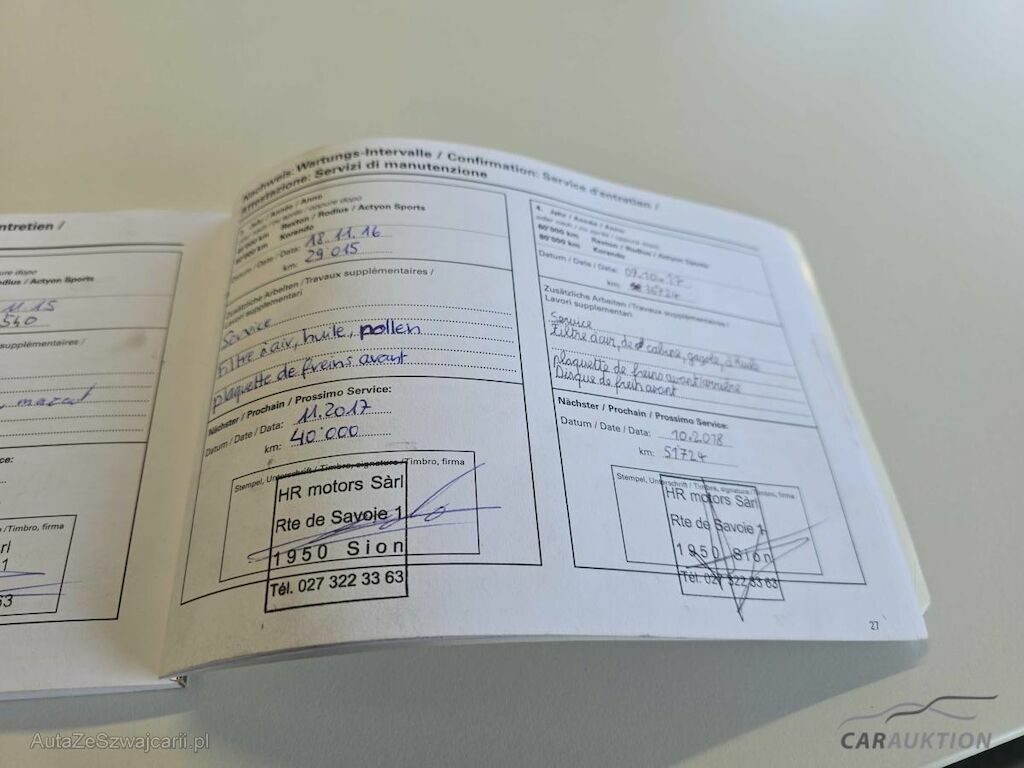 ntretien /
ure dopo
dius / Actyon Sports
11.15
540
supplémentaires /
mazout
ce:
/Timbro, firma
rl
1
63
Nachweis: Wartungs-Intervalle / Confirmation: Service d'entretien /
Attestazione: Servizi di manutenzione
Jahr / Année / Anno
oder nach / ou après / oppure dopo
Rexton / Rodius / Actyon Sports
Korando
Datum / Date / Data: 18.11.16
km: 29 015
Zusätzliche Arbeiten / Travaux supplémentaires /
Lavori supplementari
Service
Filtre à air, huile, pollen
plaquette de freins avant
Nächster / Prochain / Prossimo Service:
Datum / Date / Data: 11.2017
km: 40'000
Stempel, Unterschrift / Timbre, signature / Timbro, firma
HR motors Sàrl
Rte de Savoie 1
1950 Sion
Tél. 027 322 33 63
4. Jahr / Année / Anno
oder nach / ou après / oppure dopo
60'000 km Rexton / Rodius / Actyon Sports
80'000 km Korando
Datum / Date / Data: 09.10.17
km: 36724
Zusätzliche Arbeiten / Travaux supplémentaires /
Lavori supplementari
Service
Filtre à air, de cabine, gazole, à huile
plaquette de freins avant/arrière
Disque de frein avant
Nächster / Prochain / Prossimo Service:
Datum / Date / Data: 10.2018
km: 51724
Stempel, Unterschrift / Timbre, signature / Timbro, firma
HR motors Sàrl
Rte de Savoie 1
1950 Sion
Tél. 027 322 33 63
27
AutaZeSzwajcarii.pl
CARAUKTION